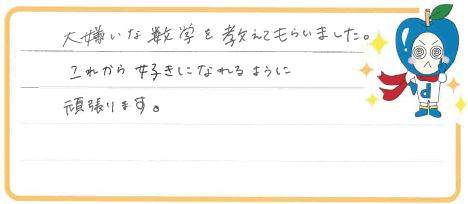 大嫌いな数学を教えてもらいました。
これから好きになれるように
頑張ります。
d